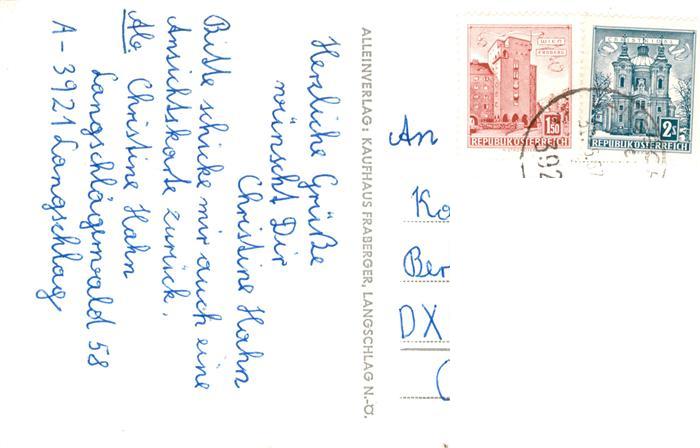 Herzliche Grüße
wünscht Dir
Christine Hahn
Bitte schicke mir auch eine
Ansichtskarte zurück.
Ab. Christine Hahn
Langschlägerwald 58
A-3921 Langschlag
ALLEINVERLAG: KAUFHAUS FRABERGER, LANGSCHLAG N.-Ö.
WIEN
ERDBERG
1.50
REPUBLIK ÖSTERREICH
CHRISTKINDL
2s
REPUBLIK ÖSTERREICH
392
An
Ko
Ber
DX